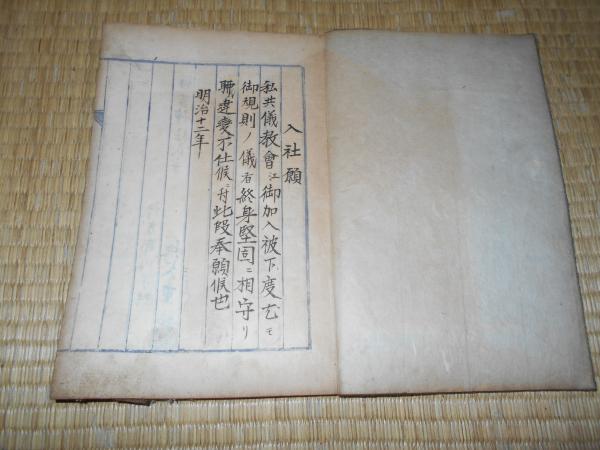 入社願
私共儀教會江御加入被下度尤モ
御規則ノ儀者終身堅固ニ相守リ
聊違変不仕候ニ付此段奉願候也
明治十二年